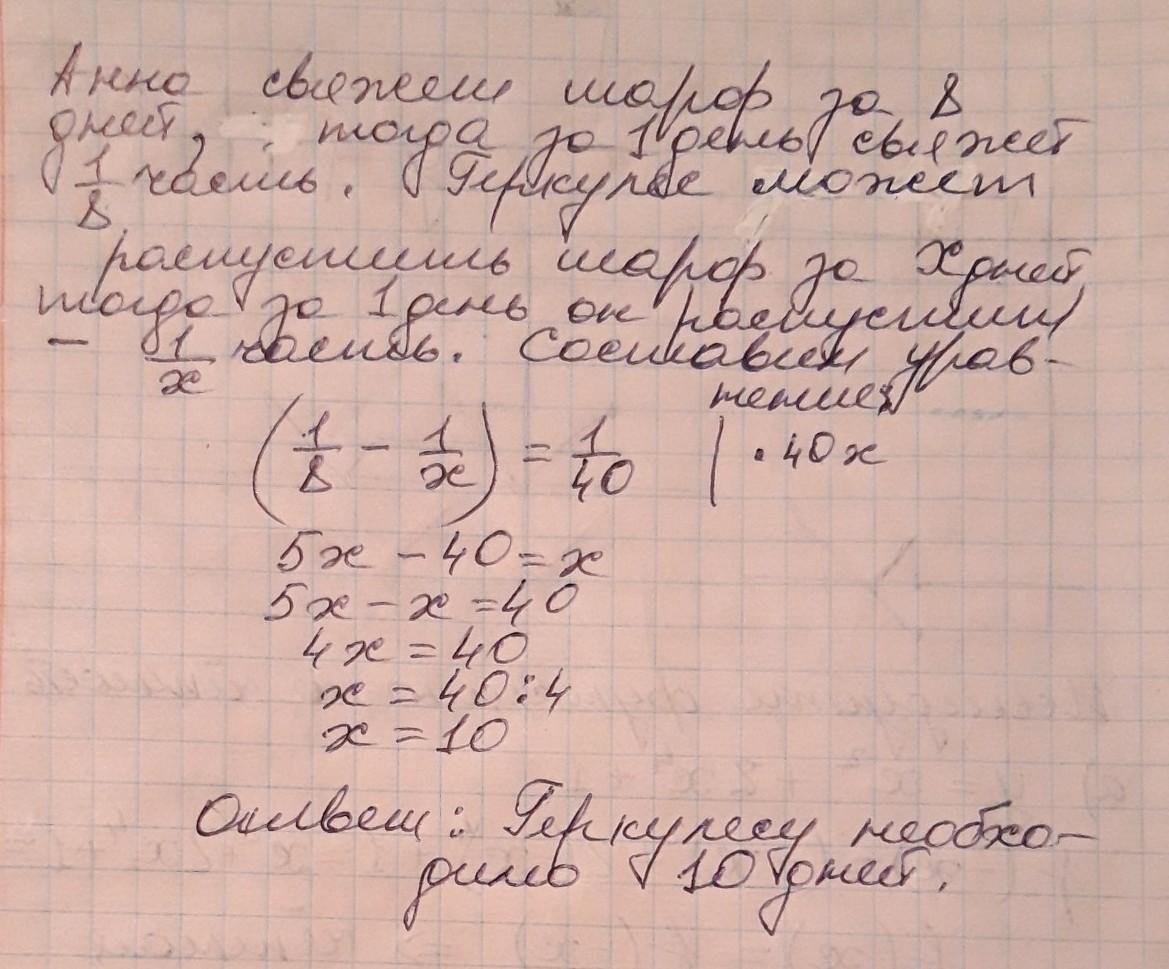 Анна свяжет шарф за 8
дней, тогда за 1 день свяжет
1/8 часть. Геркулес может
распустить шарф за X дней,
тогда за 1 день он распустит
– 1/x часть. Составим урав-
нение:
(1/8 − 1/x) = 1/40 | · 40x
5x − 40 = x
5x − x = 40
4x = 40
x = 40 : 4
x = 10
Ответ: Геркулесу необхо-
димо 10 дней.